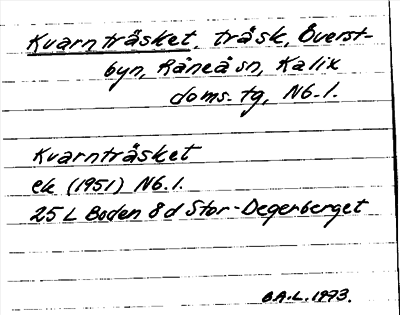 Kvarnträsket, träsk, Överst-
byn, Råneå sn, Kalix
doms. tg, Nb. l.
Kvarnträsket
ek (1951) Nb. l.
25 L Boden 8d Stor-Degerberget
B.A.L. 1973.